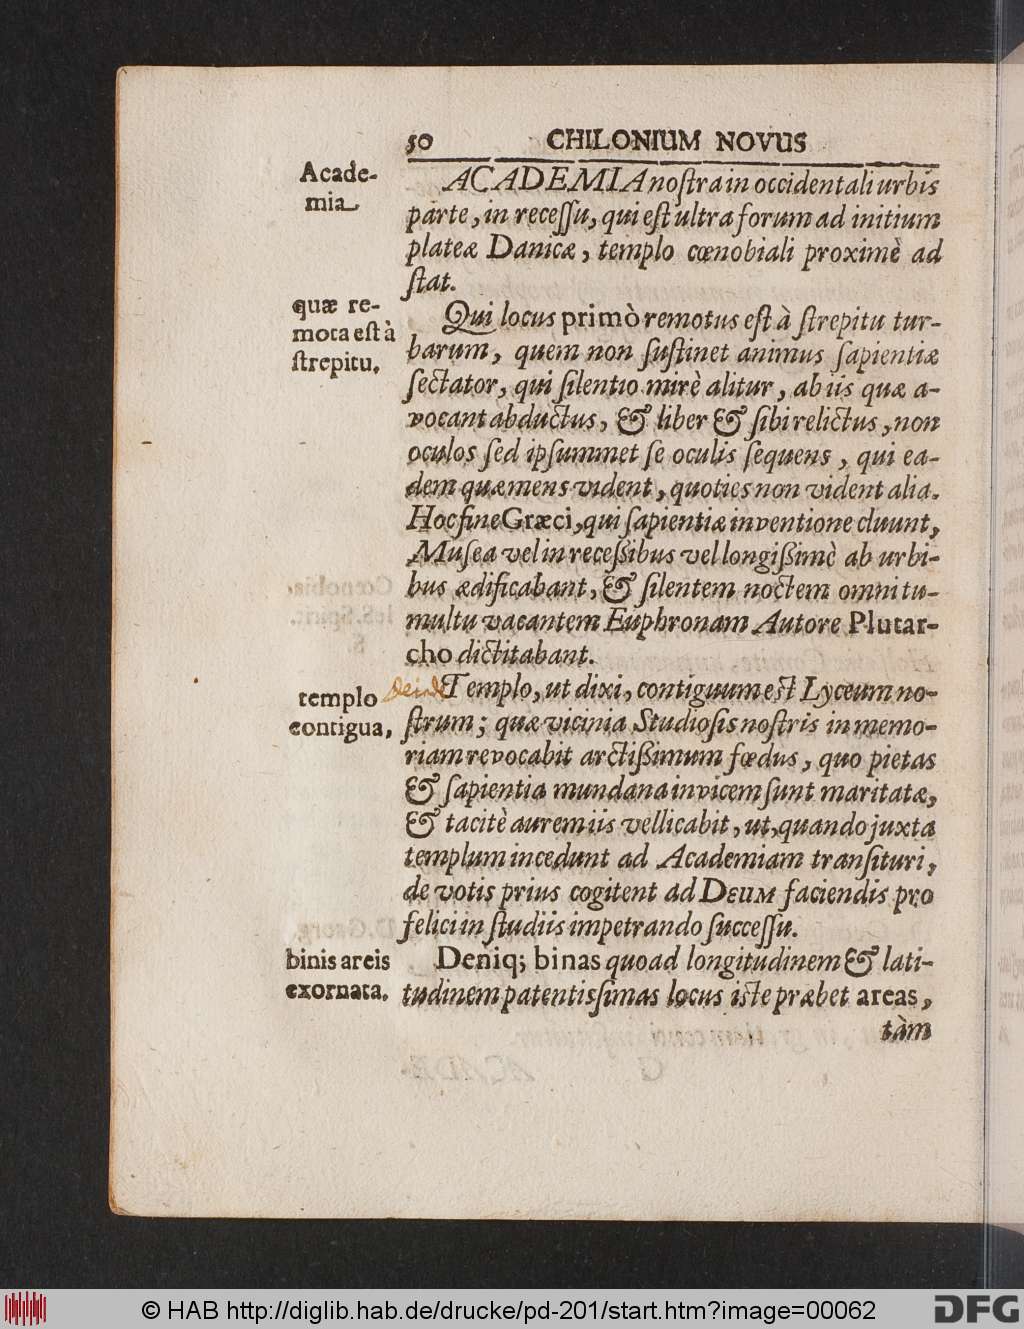 50 CHILONIUM NOVUS
Acade-
mia
ACADEMIA noſtra in occidentali urbis
parte, in receſſu, qui eſt ultra forum ad initium
plateæ Danicæ, templo cœnobiali proximè ad
ſtat.
quæ re-
mota eſt à
ſtrepitu.
Qui locus primò remotus eſt à ſtrepitu tur-
barum, quem non ſuſtinet animus ſapientiæ
ſectator, qui ſilentio mirè alitur, ab iis quæ a-
vocant abductus, & liber & ſibi relictus, non
oculos ſed ipſummet ſe oculis ſequens, qui ea-
dem quæ mens vident, quoties non vident alia.
Hoc fine Græci, qui ſapientiæ inventione cluunt,
Muſea vel in receſſibus vel longiſſimè ab urbi-
bus ædificabant, & ſilentem noctem omni tu-
multu vacantem Euphronam Autore Plutar-
cho dictitabant.
templo
contigua,
deinde Templo, ut dixi, contiguum eſt Lyceum no-
ſtrum; quæ vicinia Studioſis noſtris in memo-
riam revocabit arctiſſimum fœdus, quo pietas
& ſapientia mundana invicem ſunt maritatæ,
& tacitè aurem iis vellicabit, ut, quando juxta
templum incedunt ad Academiam tranſituri,
de votis prius cogitent ad DEUM faciendis pro
felici in ſtudiis impetrando ſucceſſu.
binis areis
exornata.
Deniq; binas quoad longitudinem & lati-
tudinem patentisſimas locus iſte præbet areas,
tàm
© HAB http://diglib.hab.de/drucke/pd-201/start.htm?image=00062
DFG